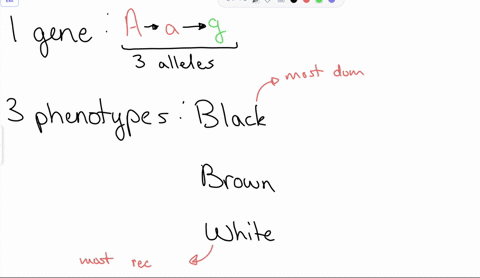 1 gene: A → a → g
3 alleles
most dom
3 phenotypes: Black
Brown
White
most rec